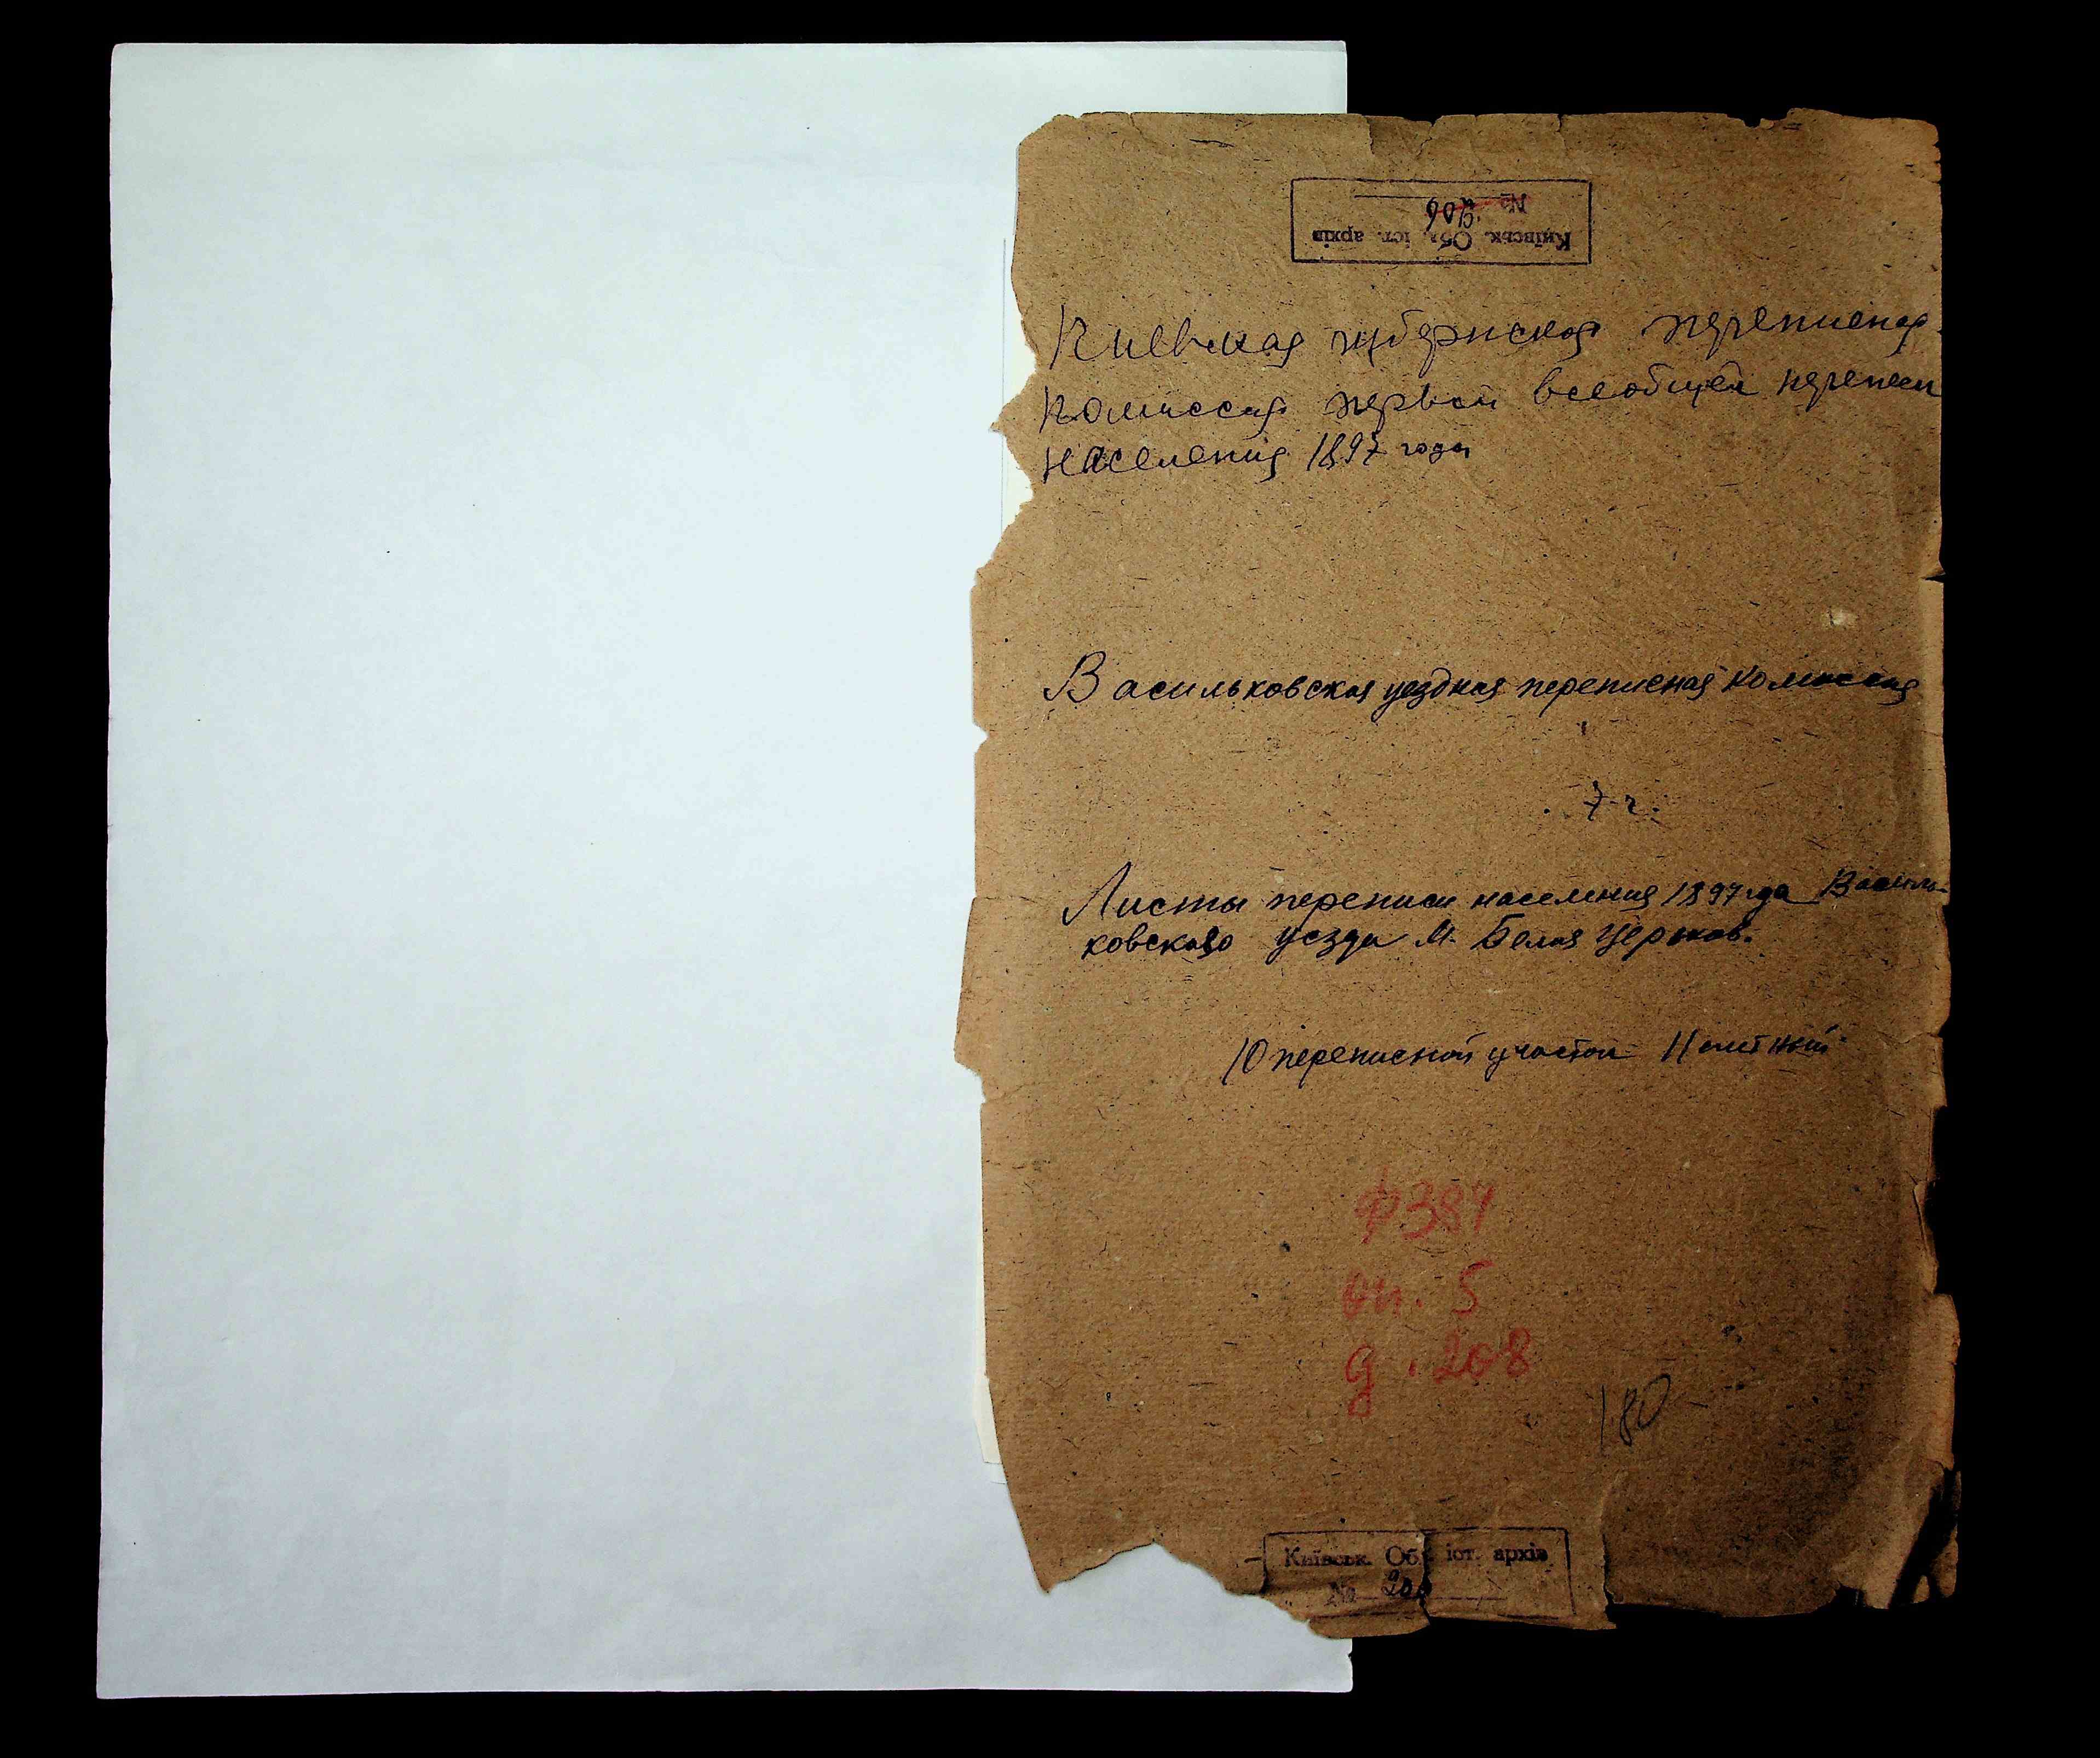 Київськ. Об. іст. архів
№ 906
Киевская губернская переписная
комиссия первой всеобщей переписи
населения 1897 года
Васильковская уездная переписная комиссия
7 г.
Листы переписи населения 1897 года Василь-
ковского уезда м. Белая Церковь.
10 переписной участок
ф 384
оп. 5
д. 208
180
Київськ. Об. іст. архів
№